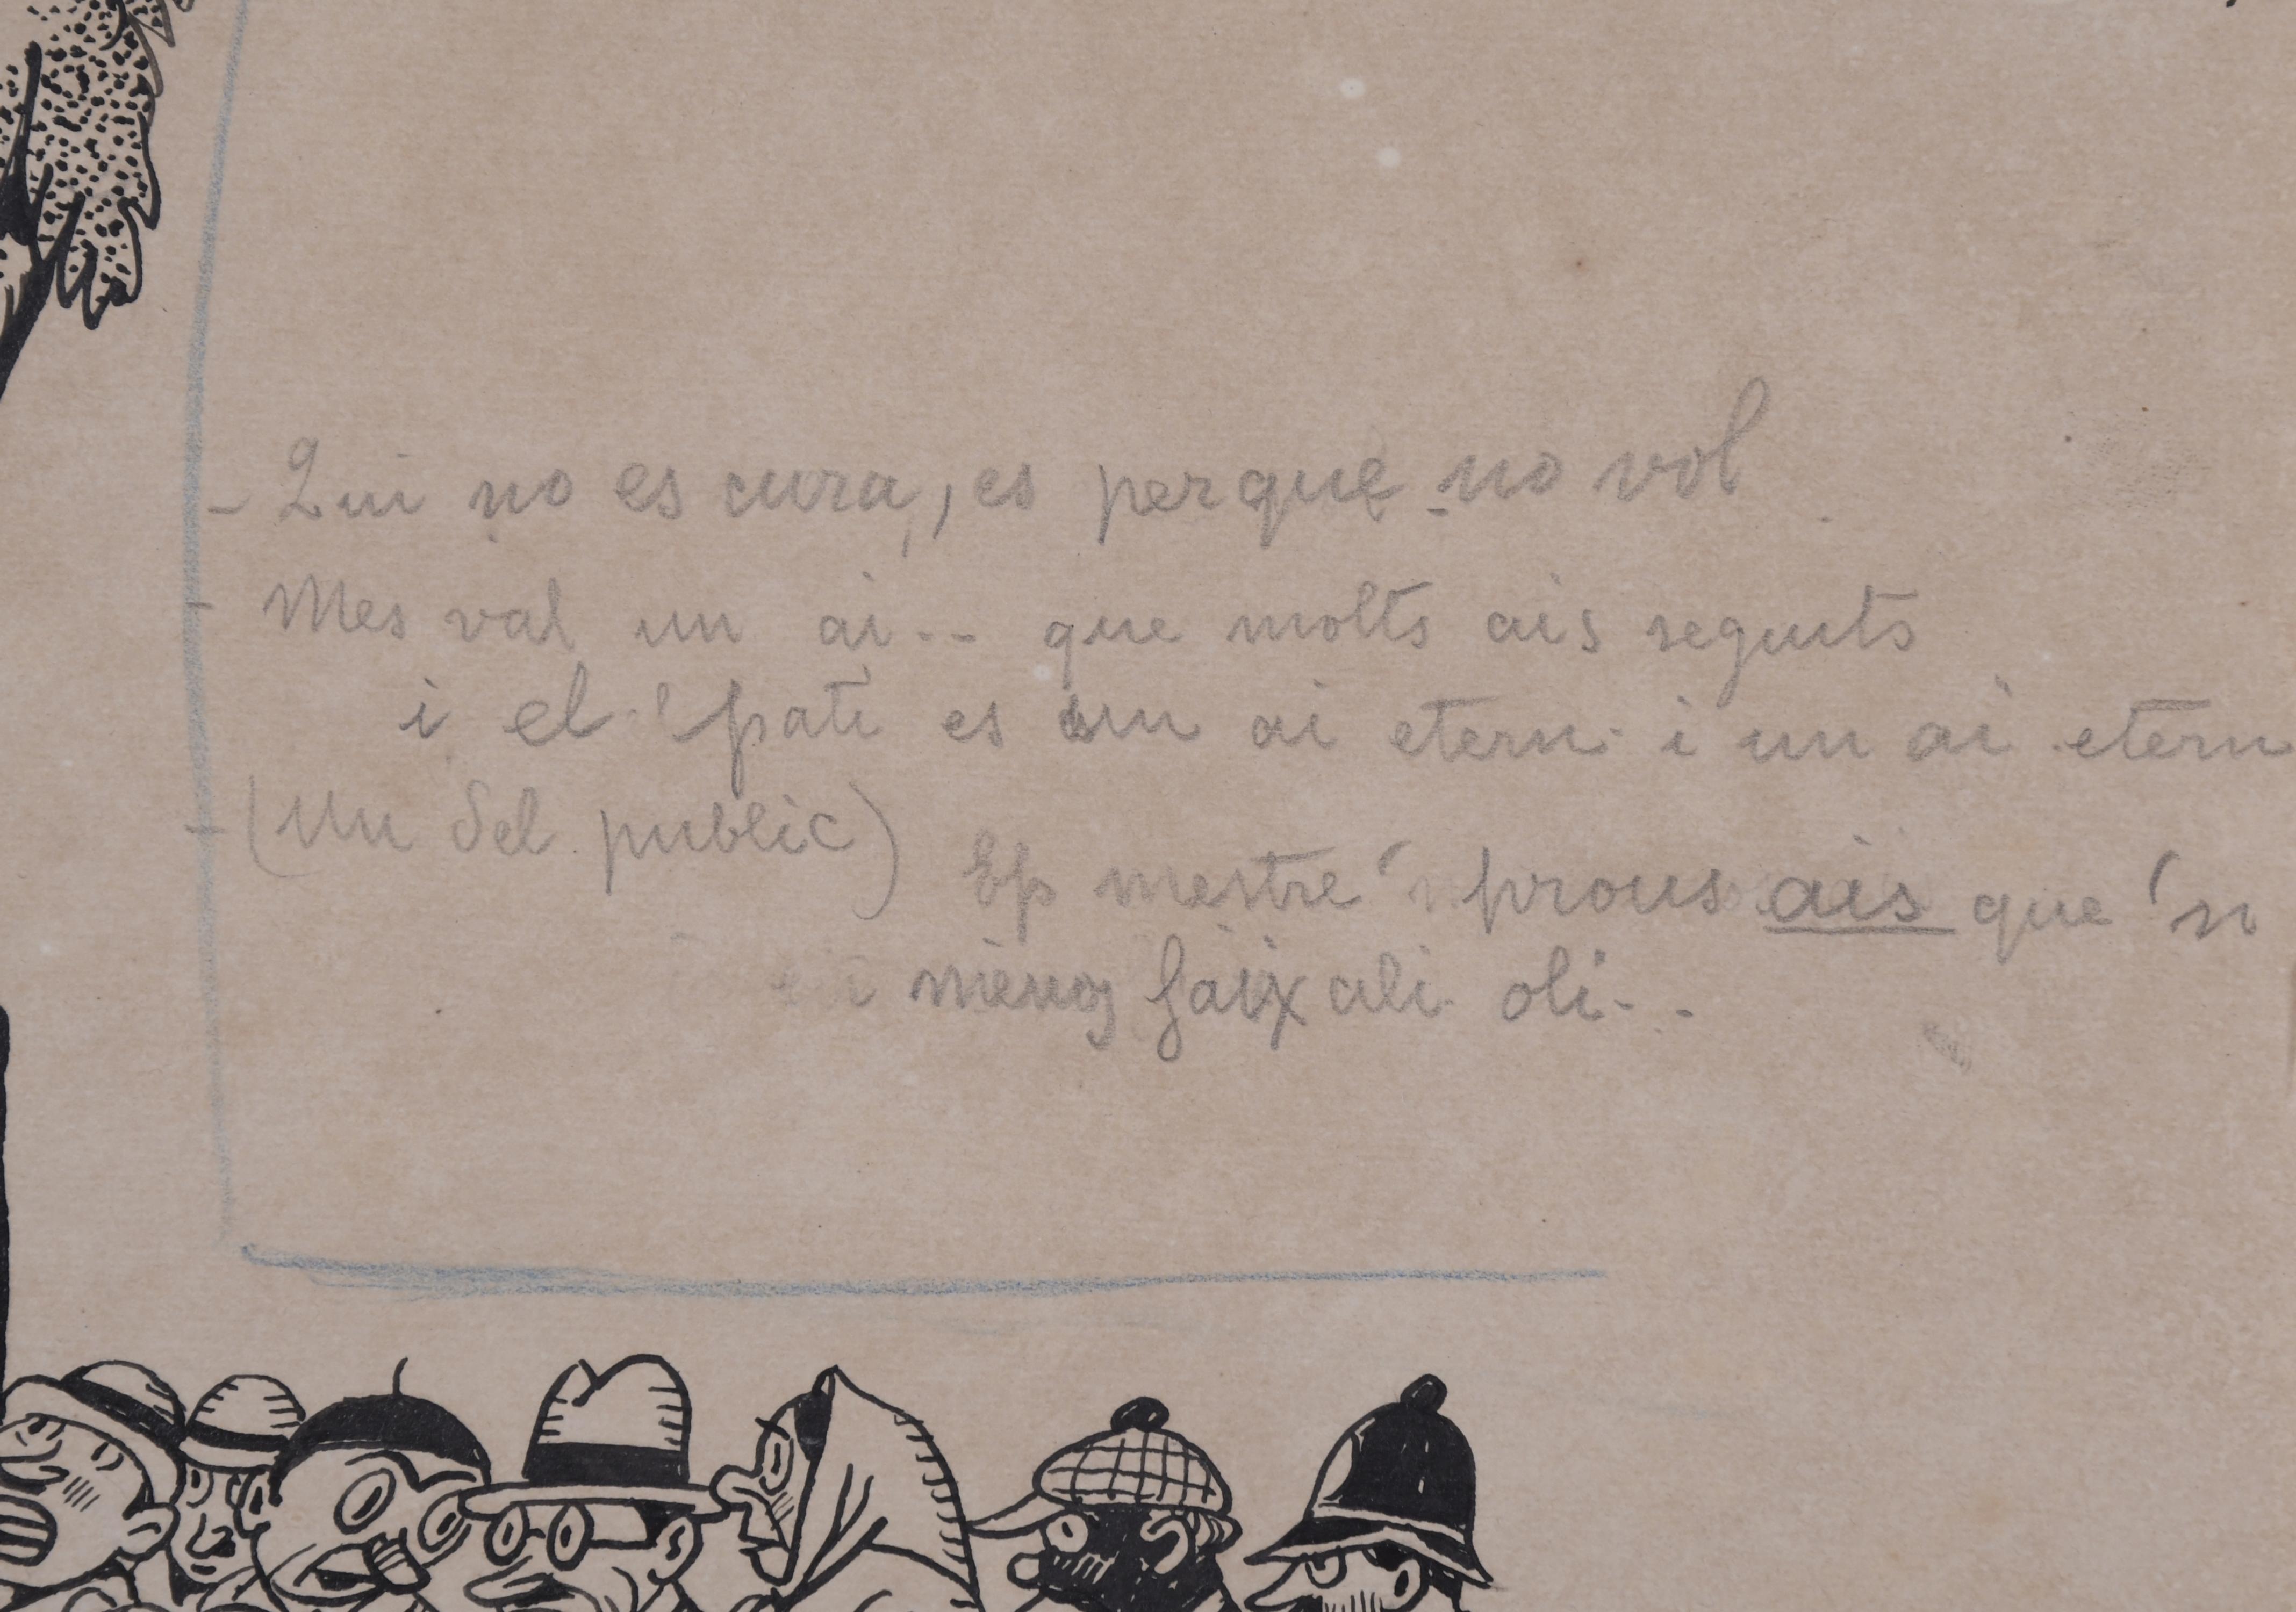 - Qui no es cura, es perque no vol
- Mes val un ai.. que molts ais seguits
i el patí es un ai etern. i un ai etern
- (Un del public) Ep mestre prous ais que 'n
faix ali oli...